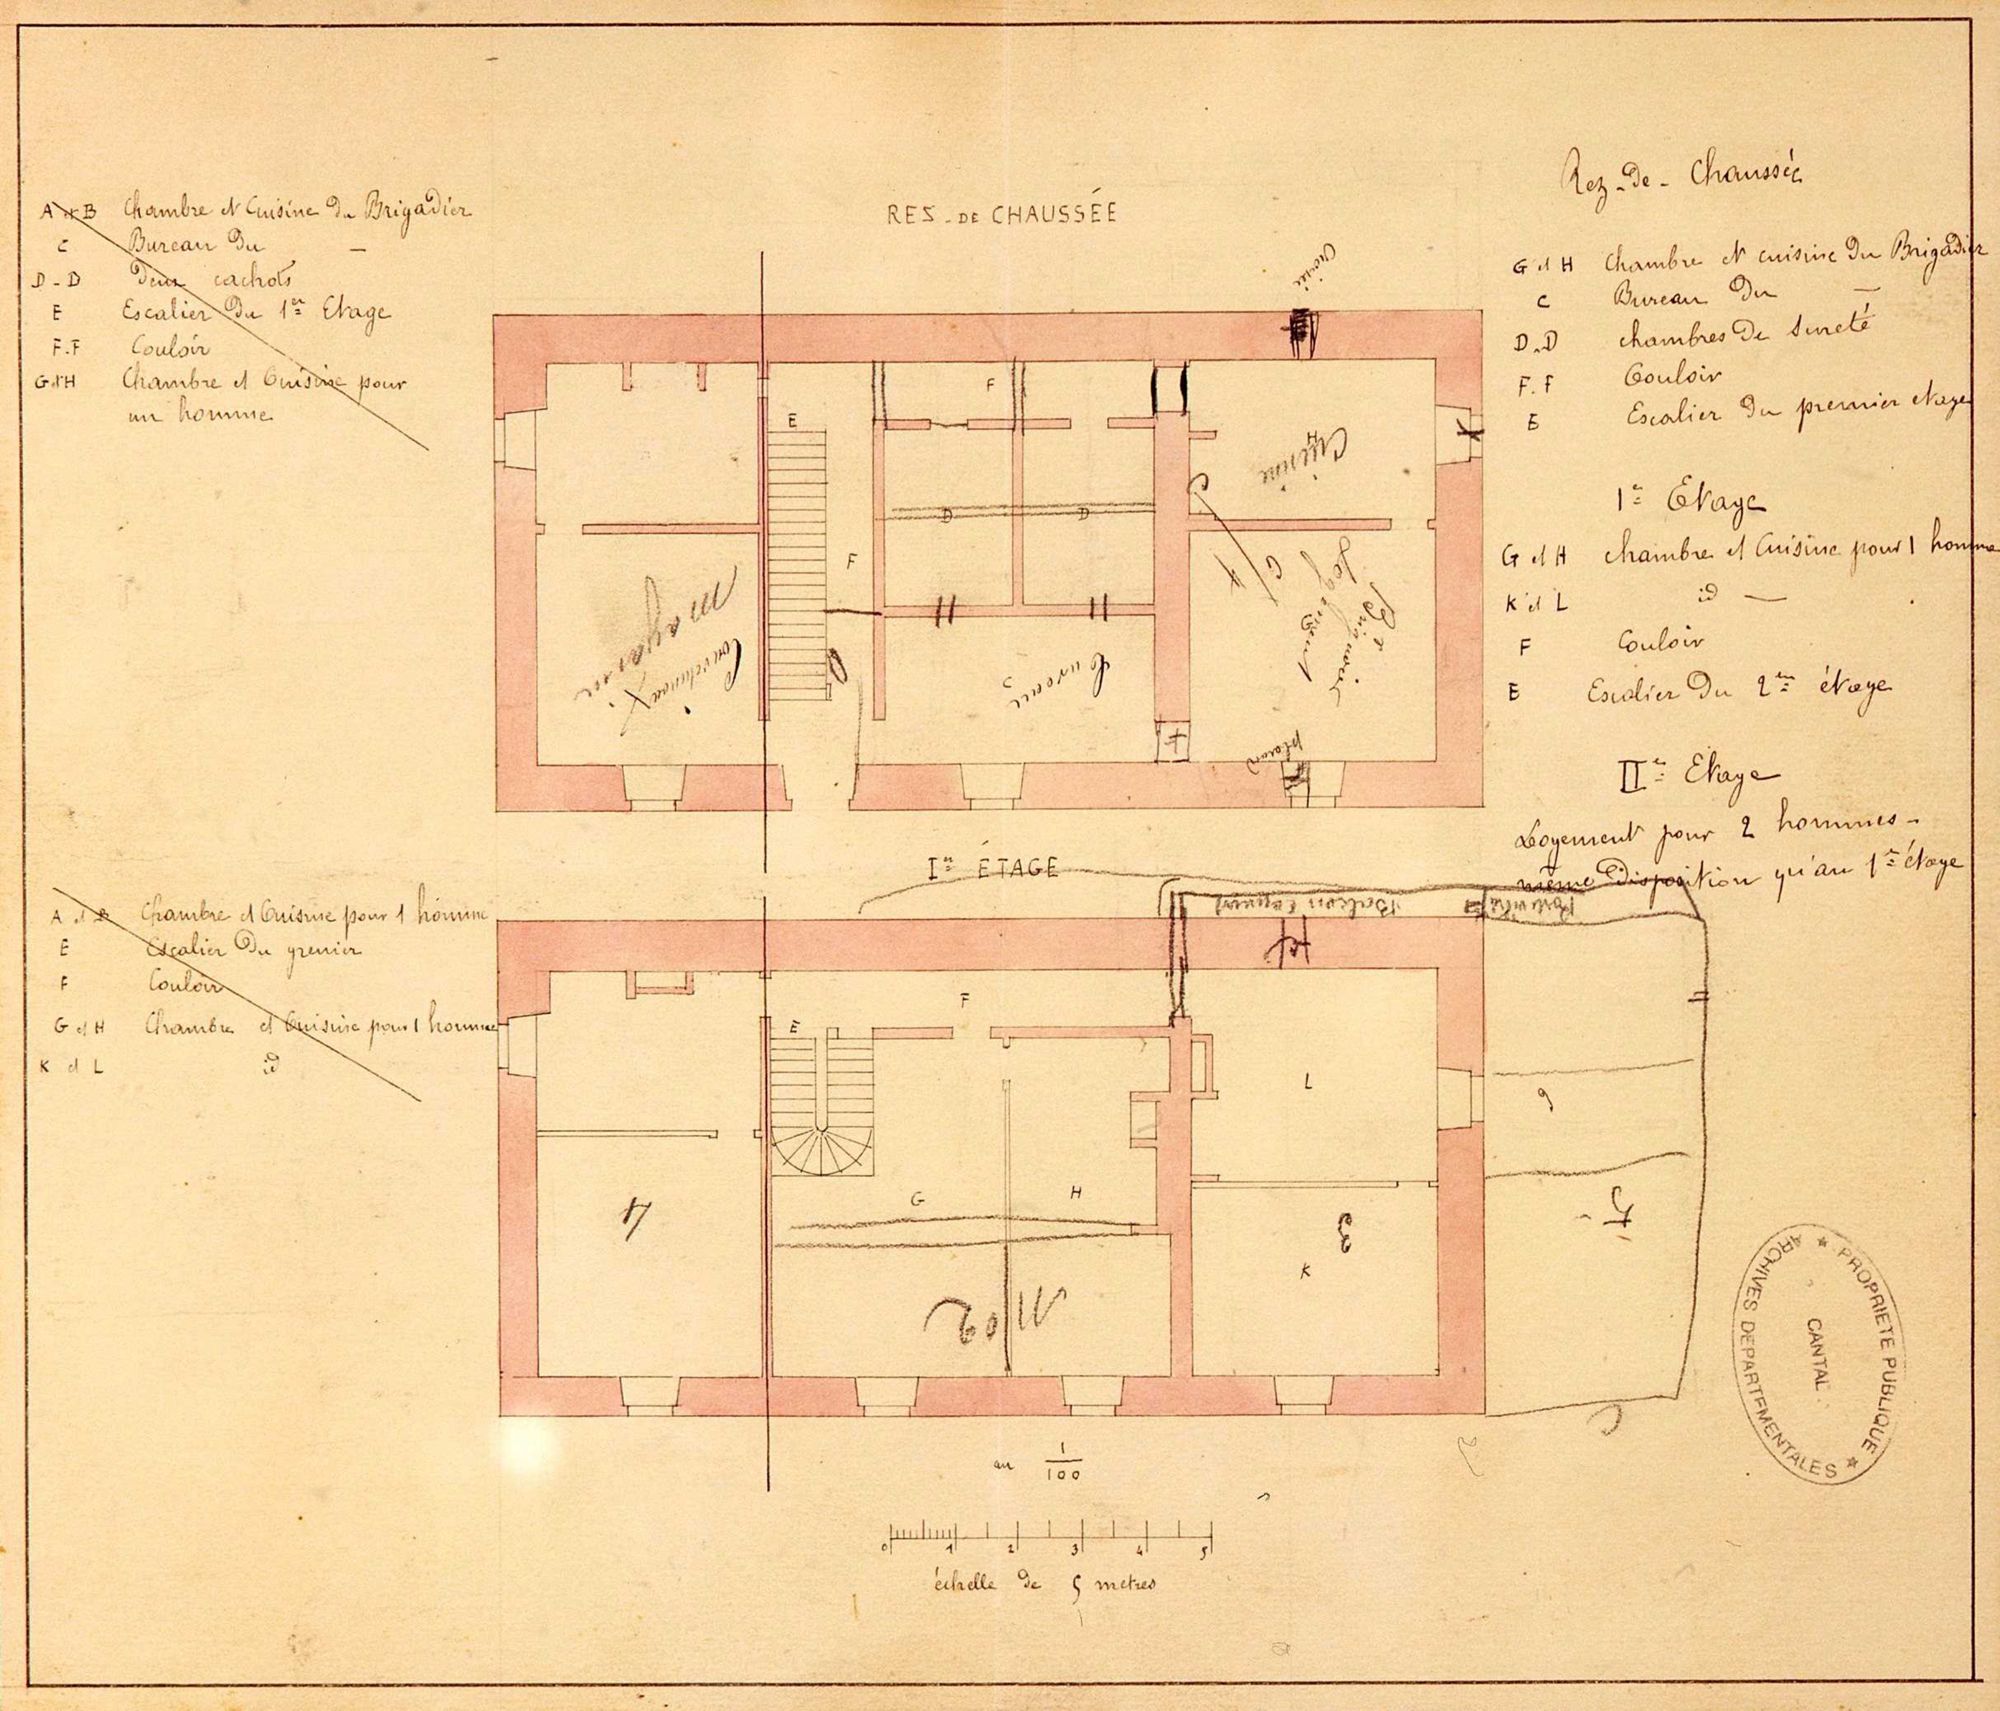 RES-DE CHAUSSÉE
A et B Chambre et Cuisine du Brigadier
C Bureau du —
D-D Deux cachots
E Escalier du 1er Etage
F.F Couloir
G et H Chambre et Cuisine pour
un homme
Rez-de-Chaussée
G et H Chambre et cuisine du Brigadier
C Bureau du —
D.D chambres de sureté
F.F Couloir
E Escalier du premier etage
1er Etage
G et H chambre et Cuisine pour 1 homme
K et L id —
F Couloir
E Escalier du 2me étage
IIe Etage
Logement pour 2 hommes -
même disposition qu'au 1er étage
E
F
F
D
D
H
Cuisine
C
G
Logement
Brigadier
Bureau
magasin
placard
Ier ÉTAGE
A et B Chambre et Cuisine pour 1 homme
E Escalier du grenier
F Couloir
G et H Chambre et Cuisine pour 1 homme
K et L id
Balcon
E
F
G
H
L
K
4
3
5
6
No 2
au 1/100
0 1 2 3 4 5
échelle de 5 metres
ARCHIVES DEPARTEMENTALES
★ PROPRIETE PUBLIQUE ★
CANTAL